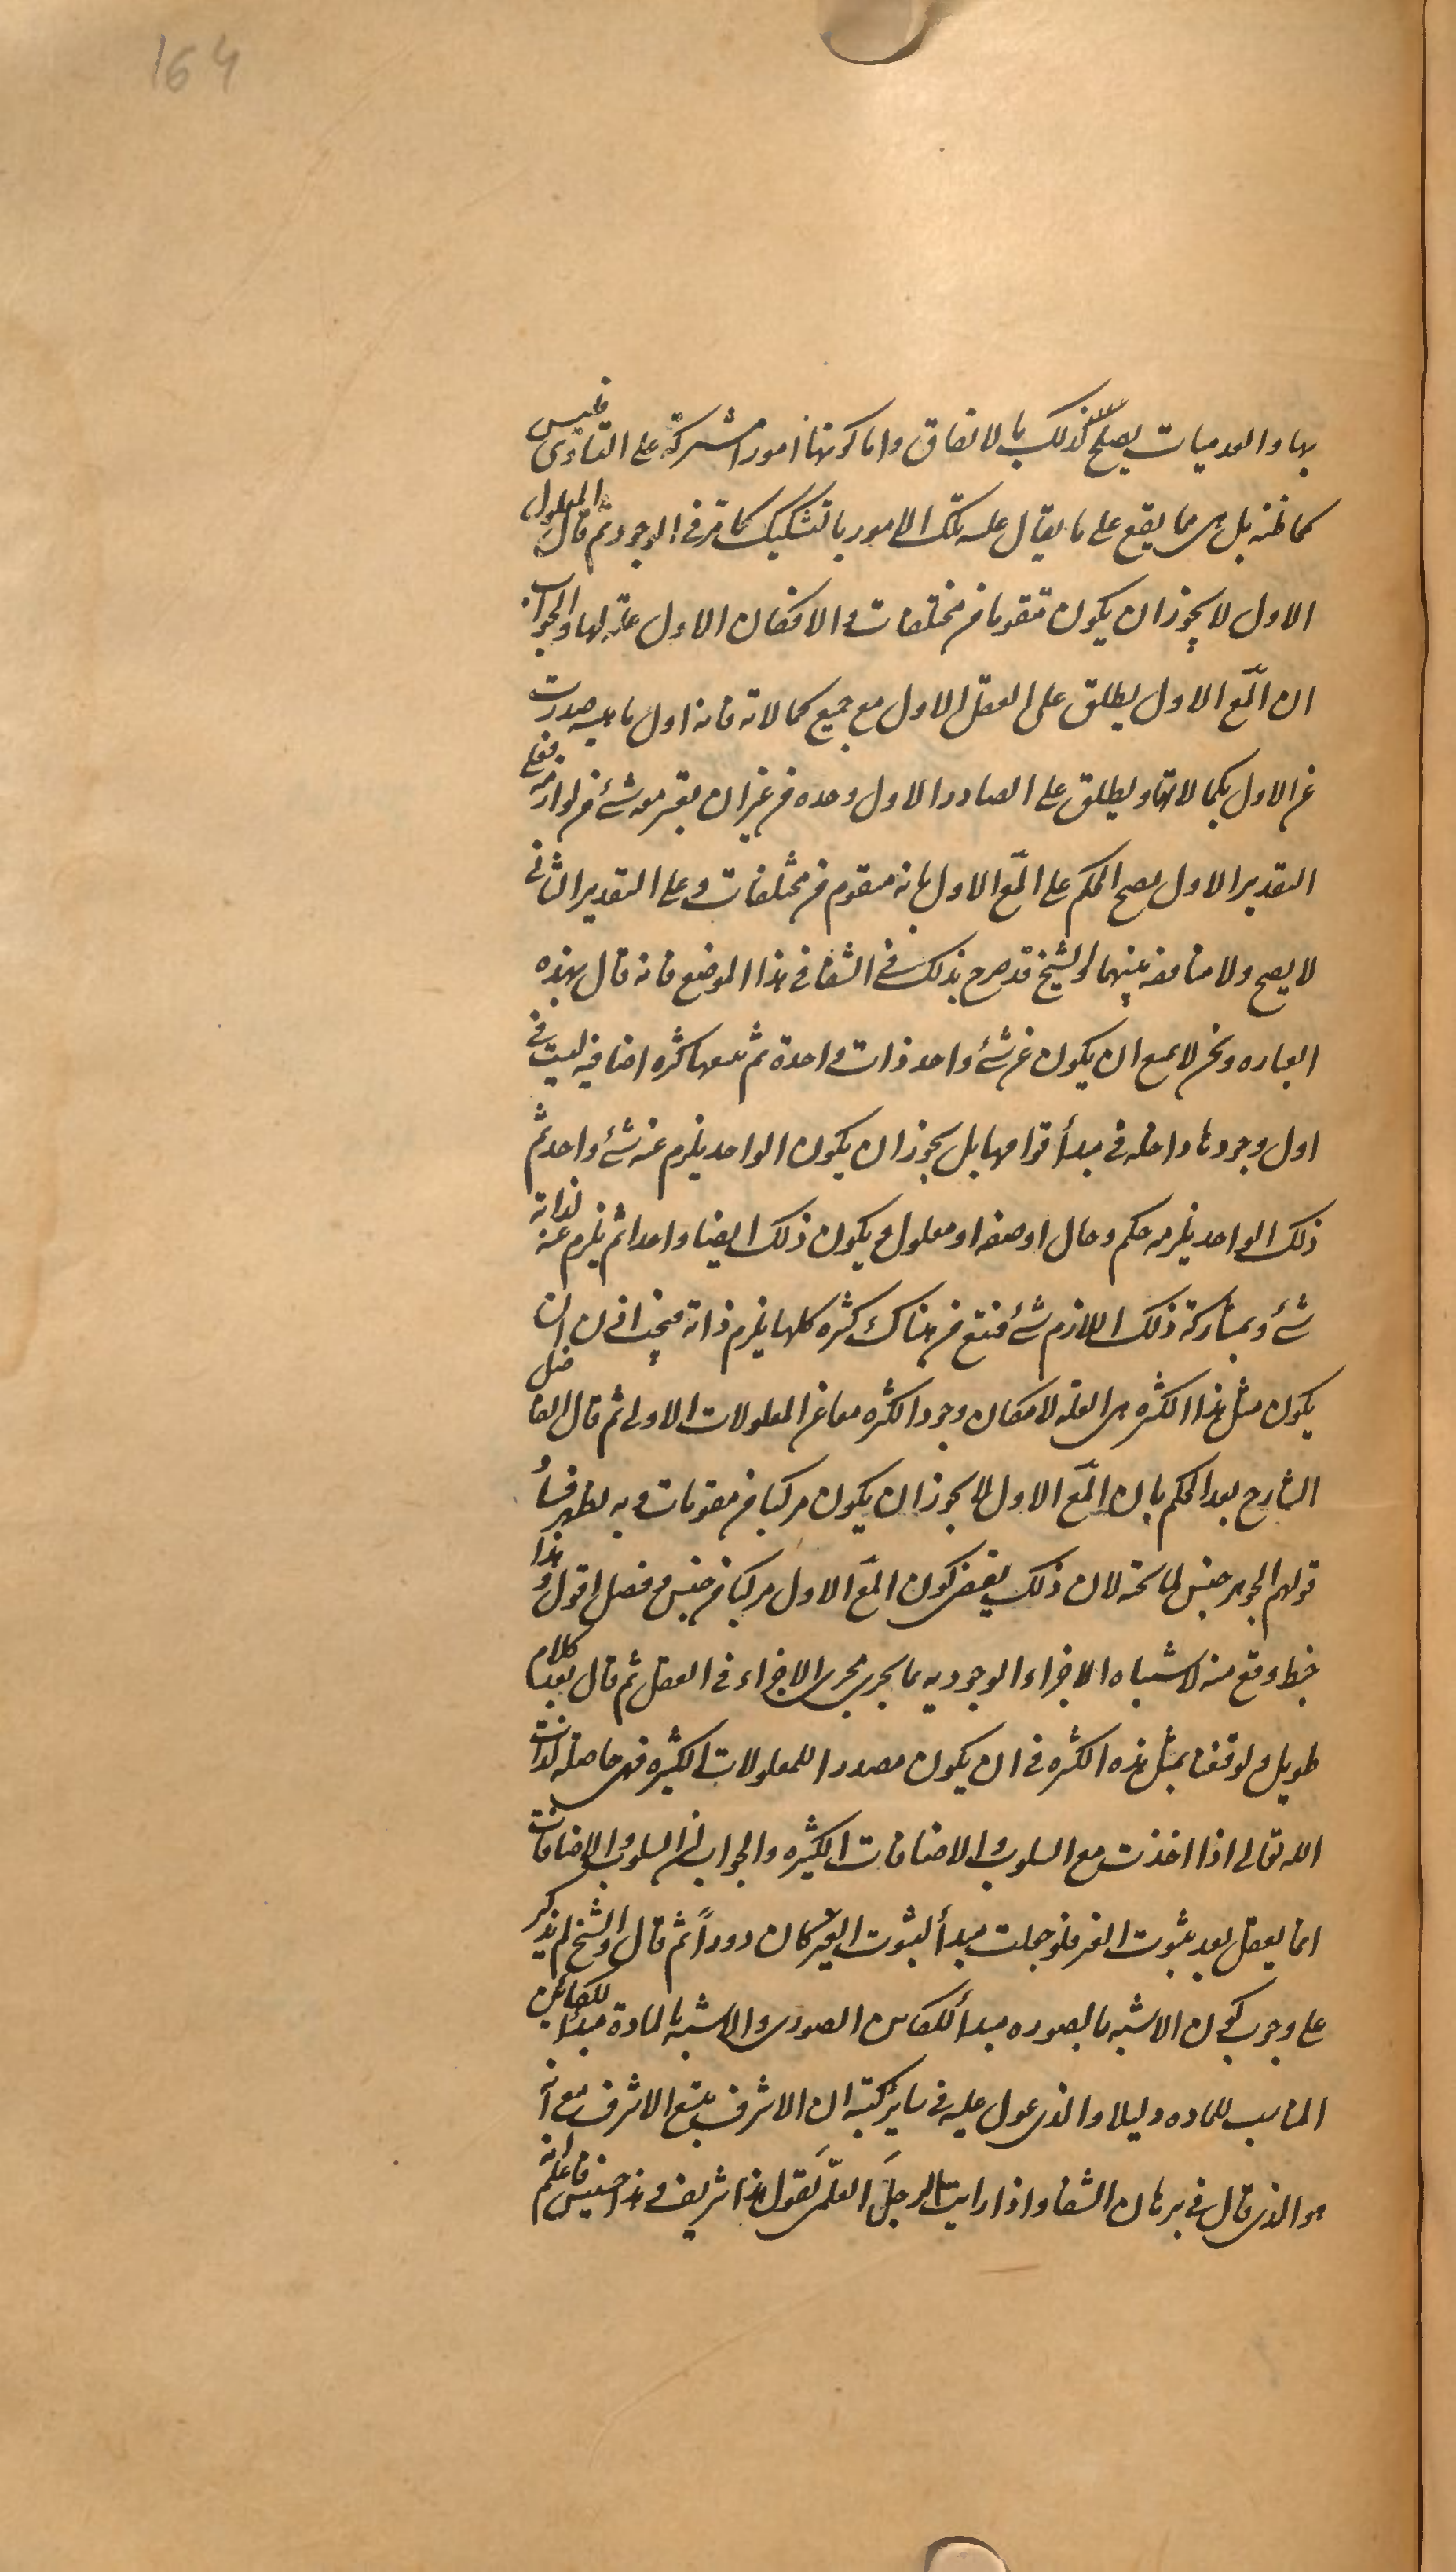 164
بها والعدميات يصلح لذلك بالاتفاق واما كونها امورا مشتركة على التساوى فليس
كما ظنه بل هى مما يقع على ما يقال عليه تلك الامور بالتشكيك كما مر فى الوجود ثم قال المعلول
الاول لا يجوز ان يكون متقوما من مختلفات والا فكان الاول علة لها والجواب
ان المع الاول يطلق على العقل الاول مع جميع كمالاته فانه اول ماهية صدرت
عن الاول بكمالاتها ويطلق على الصادر الاول وحده من غير ان يعتبر معه شئ من لوازمه فعلى
التقدير الاول يصح الحكم على المع الاول بانه متقوم من مختلفات وعلى التقدير الثانى
لا يصح ولا مناقضة بينهما والشيخ قد صرح بذلك فى الشفا فى هذا الموضع فانه قال بهذه
العباره ونحن لا نمنع ان يكون عن شئ واحد ذات واحدة ثم يتبعها كثره اضافيه ليست فى
اول وجودها داخله فى مبدأ قوامها بل يجوز ان يكون الواحد يلزم عنه شئ واحد ثم
ذلك الواحد يلزمه حكم وحال او صفه او معلول ويكون ذلك ايضا واحدا ثم يلزم عنه لذاته
شئ وبمشاركة ذلك اللازم شئ فتتبع من هناك كثره كلها يلزم ذاته فيجب اذن ان
يكون مثل هذا الكثره هى العله لامكان وجود الكثره معا عن المعلولات الاولى ثم قال الفاضل
الشارح بعد الحكم بان المع الاول لا يجوز ان يكون مركبا من مقومات وبه يظهر فساد
قولهم الجوهر جنس لما تحته لان ذلك يقتضى كون المع الاول مركبا من جنس وفصل اقول وهذا
خبط وقع منه لاشتباه الاجزاء الوجوديه بما يجرى مجرى الاجزاء فى العقل ثم قال بعد كلام
طويل ولو قنعنا بمثل هذه الكثره فى ان يكون مصدرا للمعلولات الكثيره فهى حاصله لذات
الله تعالى اذا اخذت مع السلوب والاضافات الكثيره والجواب ان السلوب والاضافات
انما يعقل بعد ثبوت الغير فلو جعلت مبدأ لثبوت الغير كان دوراً ثم قال والشيخ لم يذكر
على وجوب كون الاشبه بالصوره مبدأ للكائن الصورى والاشبه بالمادة مبدأ للكائن
المناسب للماده دليلا والذى عول عليه فى ساير كتبه ان الاشرف يتبع الاشرف مع انه
هو الذى قال فى برهان الشفا واذا رايت الرجلَ العلّمى يَقول هذا شريف وهذا خسيس فاعلم انه